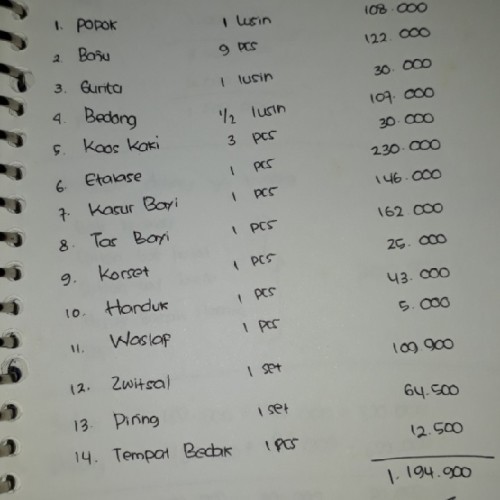 1. Popok 1 lusin 108.000
2. Baju 9 pcs 122.000
3. Gurita 1 lusin 30.000
4. Bedong 1/2 lusin 107.000
5. Kaos Kaki 3 pcs 30.000
6. Etalase 1 pcs 230.000
7. Kasur Bayi 1 pcs 146.000
8. Tas Bayi 1 pcs 162.000
9. Korset 1 pcs 25.000
10. Handuk 1 pcs 43.000
11. Waslap 1 pcs 5.000
12. Zwitsal 1 set 109.900
13. Piring 1 set 64.500
14. Tempat Bedak 1 pcs 12.500
1.194.900